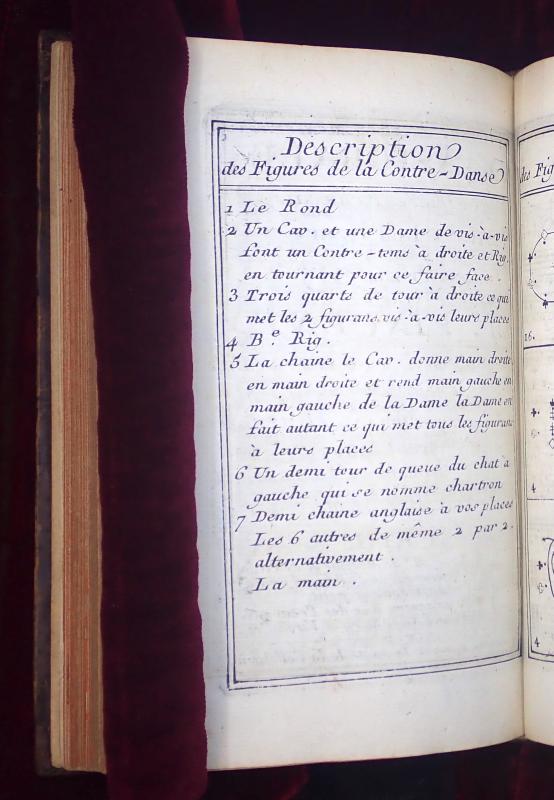 Description
des Figures de la Contre-Danse
1 Le Rond
2 Un Cav. et une Dame de vis-à-vis
font un Contre-tems à droite et Rig.
en tournant pour ce faire face.
3 Trois quarts de tour à droite ce qui
met les 2 figurans vis-à-vis leurs places
4 Be. Rig.
5 La chaine le Cav. donne main droite
en main droite et rend main gauche en
main gauche de la Dame la Dame en
fait autant ce qui met tous les figurans
à leurs places
6 Un demi tour de queue du chat à
gauche qui se nomme chartron
7 Demi chaine anglaise à vos places
Les 6 autres de même 2 par 2.
alternativement.
La main.
des Fig
16.
4
4